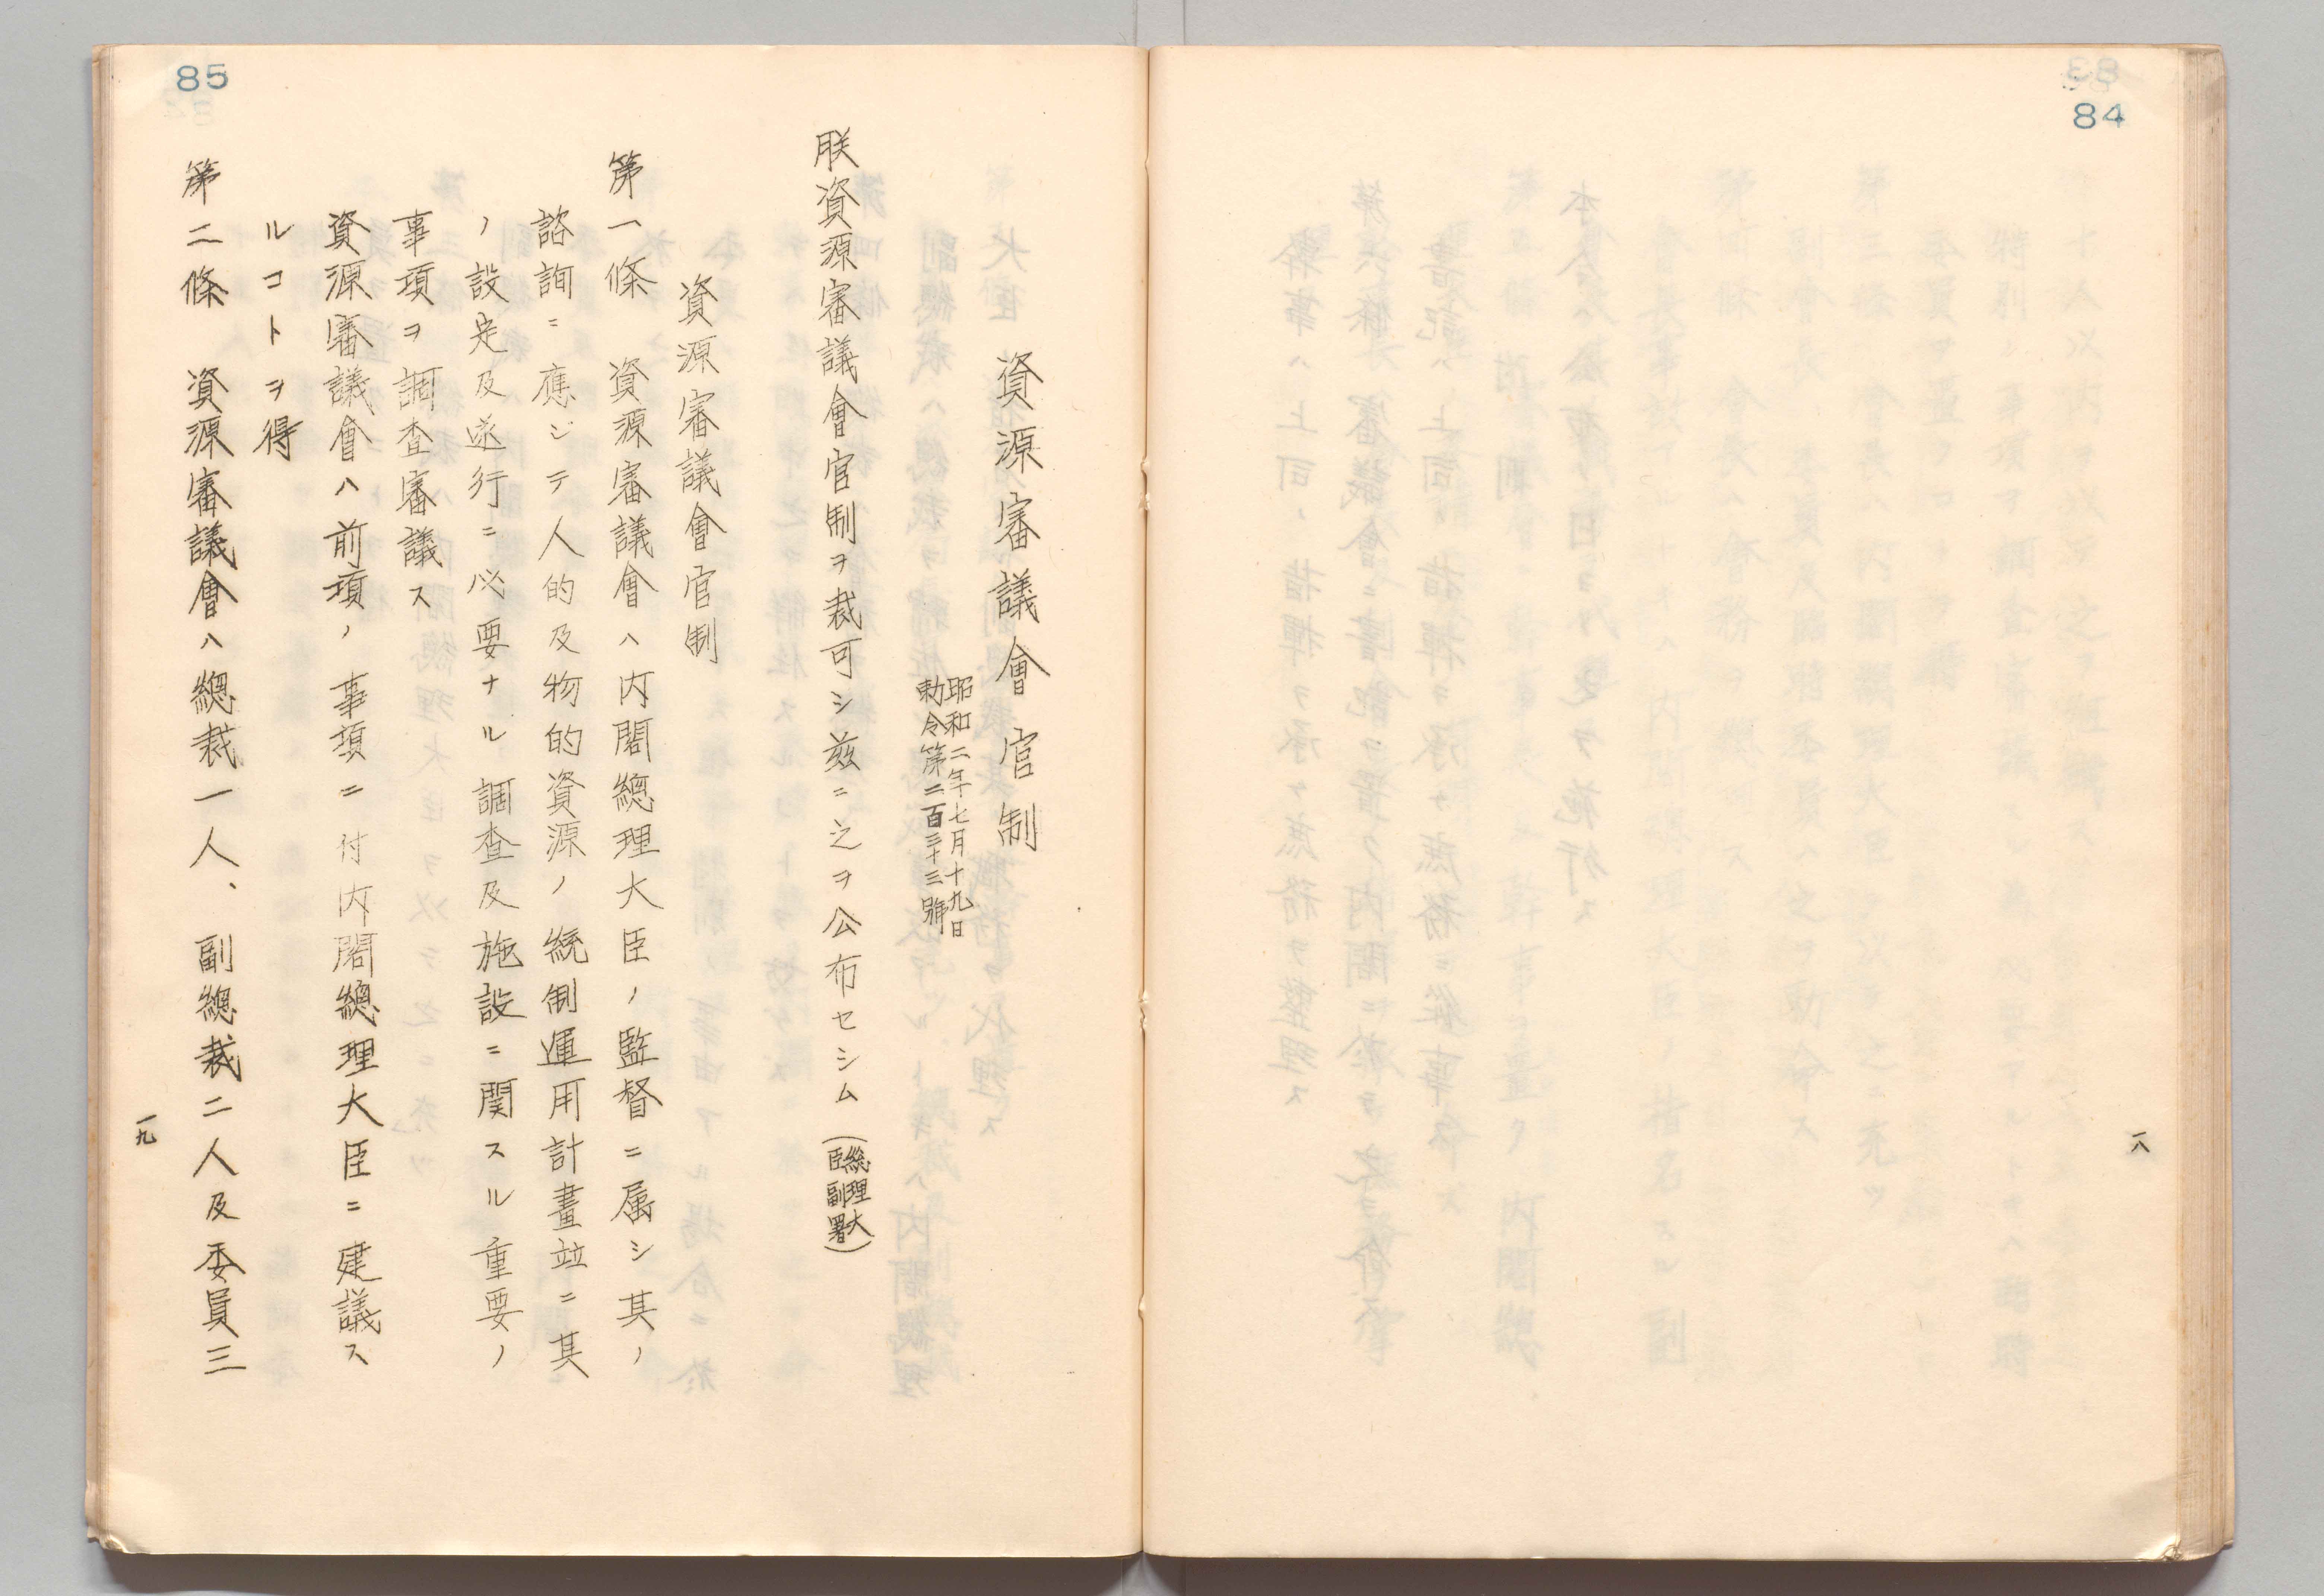 84
一八
85
資源審議會官制
昭和二年七月十九日
勅令第二百三十三號
朕資源審議會官制ヲ裁可シ茲ニ之ヲ公布セシム(總理大臣副署)
資源審議會官制
第一條　資源審議會ハ内閣總理大臣ノ監督ニ属シ其ノ
諮詢ニ應ジテ人的及物的資源ノ統制運用計畫竝ニ其
ノ設定及遂行ニ必要ナル調査及施設ニ関スル重要ノ
事項ヲ調査審議ス
資源審議會ハ前項ノ事項ニ付内閣總理大臣ニ建議ス
ルコトヲ得
第二條　資源審議會ハ總裁一人、副總裁二人及委員三
一九